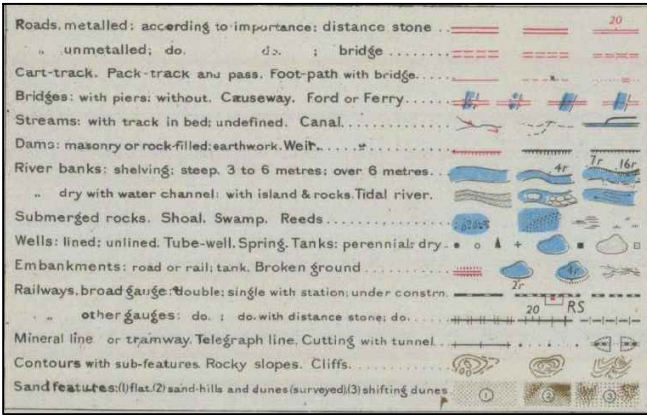 Roads, metalled: according to importance: distance stone 20
„ unmetalled; do. do. ; bridge
Cart-track. Pack-track and pass. Foot-path with bridge.
Bridges: with piers: without. Causeway. Ford or Ferry
Streams: with track in bed; undefined. Canal.
Dams: masonry or rock-filled: earthwork. Weir.
River banks: shelving; steep, 3 to 6 metres; over 6 metres. 4r 7r 16r
„ dry with water channel: with island & rocks. Tidal river.
Submerged rocks. Shoal. Swamp. Reeds
Wells: lined; unlined. Tube-well. Spring. Tanks: perennial: dry
Embankments: road or rail; tank. Broken ground 2r 4r
Railways, broad gauge: double; single with station; under constrn. RS
„ other gauges: do. ; do. with distance stone; do. 20
Mineral line or tramway. Telegraph line. Cutting with tunnel
Contours with sub-features. Rocky slopes. Cliffs.
Sand features: (1) flat. (2) sand-hills and dunes (surveyed). (3) shifting dunes 1 2 3